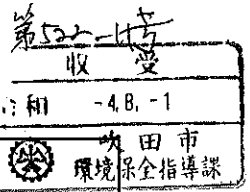 第522-1号
収受
令和 -4.8.-1
吹田市
環境保全指導課